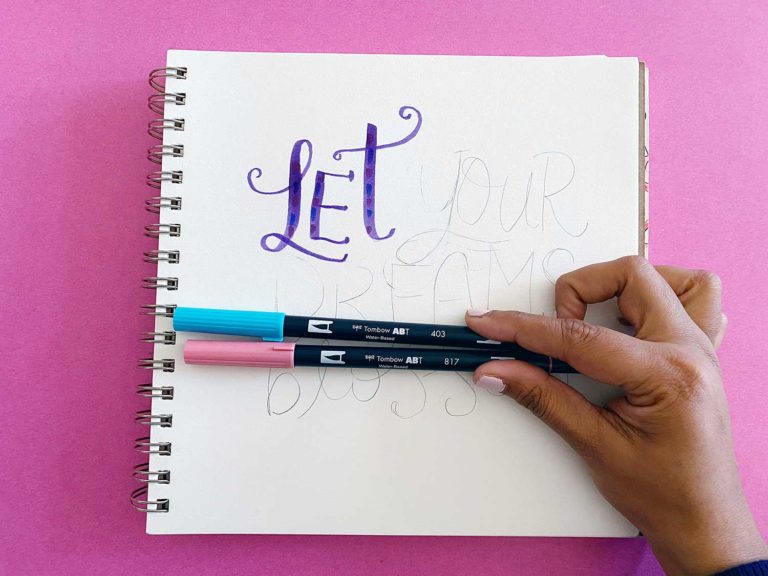 LET YOUR
DREAMS
Tombow ABT 403
Water-Based
Tombow ABT 817
Water-Based